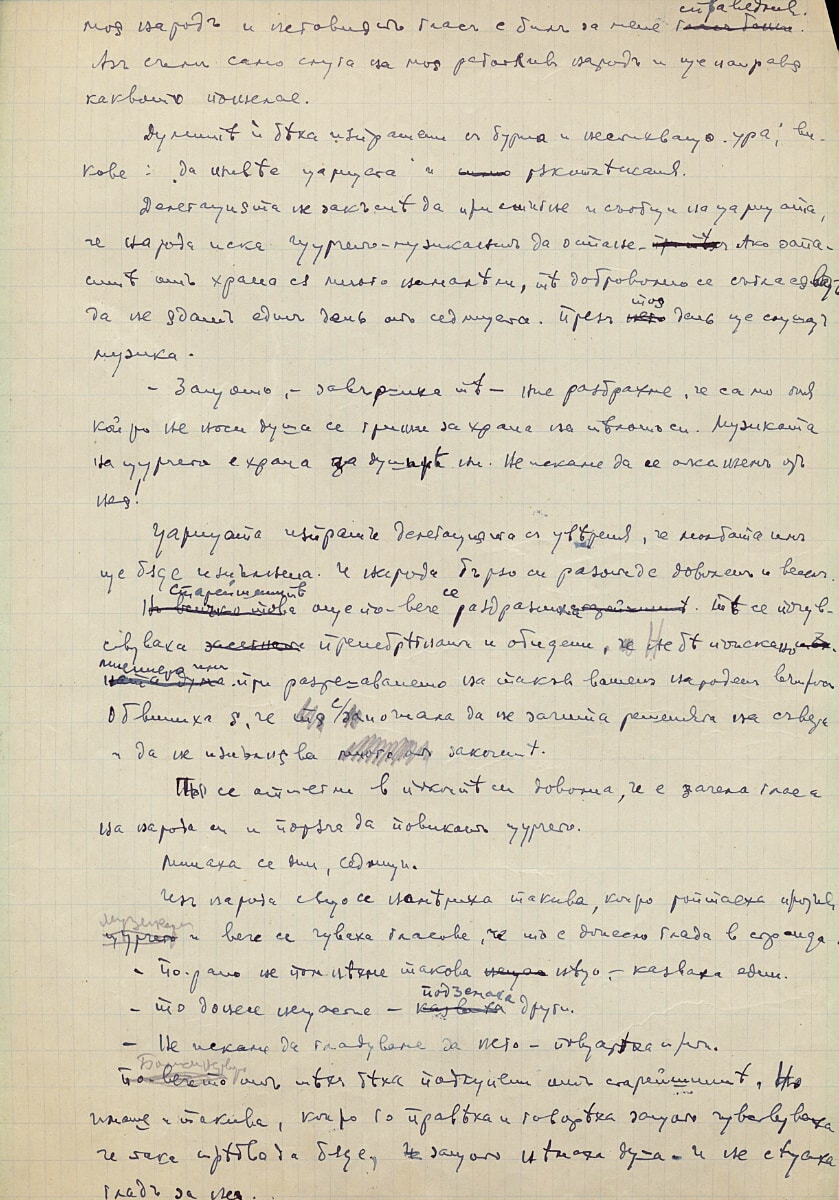 моя народъ и неговиятъ гласъ е билъ за мене гласъ божи справедливъ.
Азъ съмъ само слуга на моя работливъ народъ и ще направя
каквото пожелае.
Думитѣ ѝ бѣха изпратени съ бурно и нестихващо „ура“, ви-
кове: „да живѣе царицата“ и рѫкоплѣскания.
Делегацията не закъснѣ да пристигне и съобщи на царицата,
че народа иска щурчето-музикантъ да остане. Ако запа-
ситѣ отъ храна сѫ много намалѣли, тѣ доброволно се съгласяватъ
да не ядатъ единъ день отъ седмицата. Презъ него тоя день ще слушатъ
музика.
– Защото, – завършиха тѣ – ние разбрахме, че само оня
който не носи душа се грижи за храна на тѣлото си. Музиката
на щурчето е храна за душитѣ ни. Не искаме да се откажемъ отъ
нея!
Царицата изпрати делегацията съ увѣрения, че молбата имъ
ще бѫде изпълнена. И народа бързо си разотиде доволенъ и веселъ.
И всичко това старейшинитѣ още по-вече се раздразниха. Тѣ се почув-
ствуваха пренебрѣгнати и обидени, че не бѣ поискано
мнението имъ при разрешаването на такъвъ важенъ народенъ въпросъ.
Обвиниха я, че е започнала да не зачита решенията на съвета
и да не изпълнява законитѣ.
Тя се оттегли в покоитѣ си доволна, че е зачела гласа
на народа си и порѫча да повикатъ щурчето.
Минаха се дни, седмици.
Изъ народа също се намѣриха такива, които роптаеха противъ
щурчето музиканта и вече се чуваха гласове, че то е донесло глада в страната.
– По-рано не помнѣхме такова нѣщо, – казваха едни.
– То донесе нещастие – казваха подземаха други.
– Не искаме да гладуваме за него – повтаряха трети.
По-вечето отъ тѣхъ бѣха подкупени отъ старейшинитѣ. Но
имаше и такива, които го правѣха и говорѣха защото чувствуваха
че така трѣбва да бѫде, защото нѣмаха душа – и не сѣщаха
гладъ за нея.